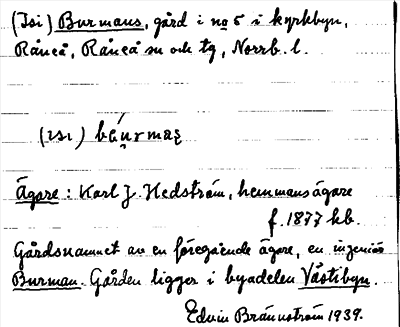 (Isi) Burmans, gård i no 5 i kyrkbyn,
Råneå, Råneå sn och tg, Norrb. l.
(ısı)
Ägare: Karl J. Hedström, hemmansägare
f. 1877 kb.
Gårdsnamnet av en föregående ägare, en ingeniör
Burman. Gården ligger i byadelen Västibyn.
Edvin Brännström 1939.